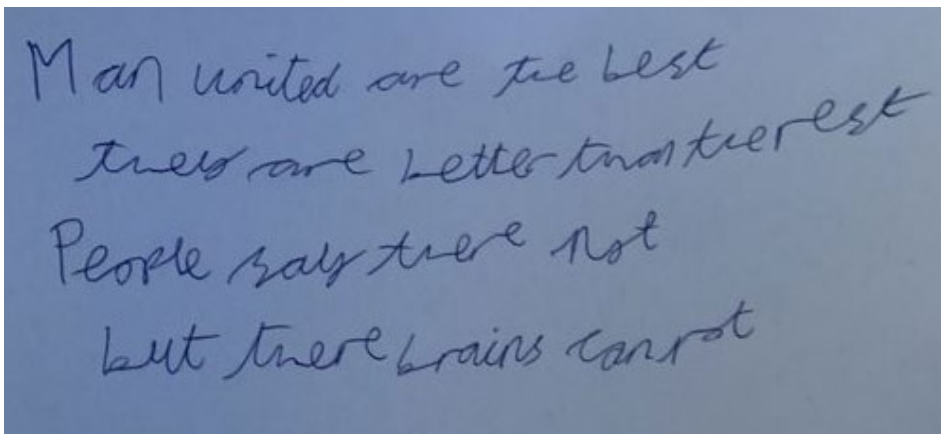 Man united are the best
they are better than the rest
People say there not
but there brains can rot